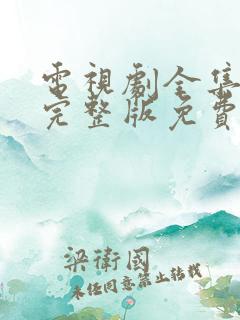 電視劇全集
完整版免費
梁衛國
未任同意禁止转载